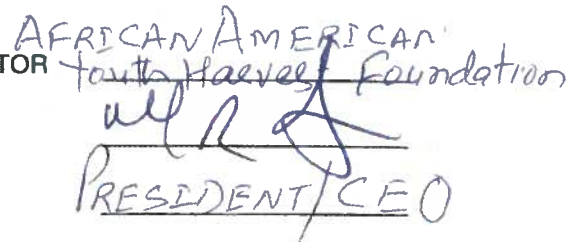 AFRICAN AMERICAN
TOR Youth Harvest Foundation
PRESIDENT/CEO